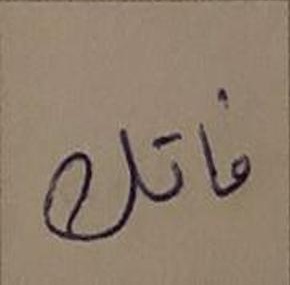 فاتك